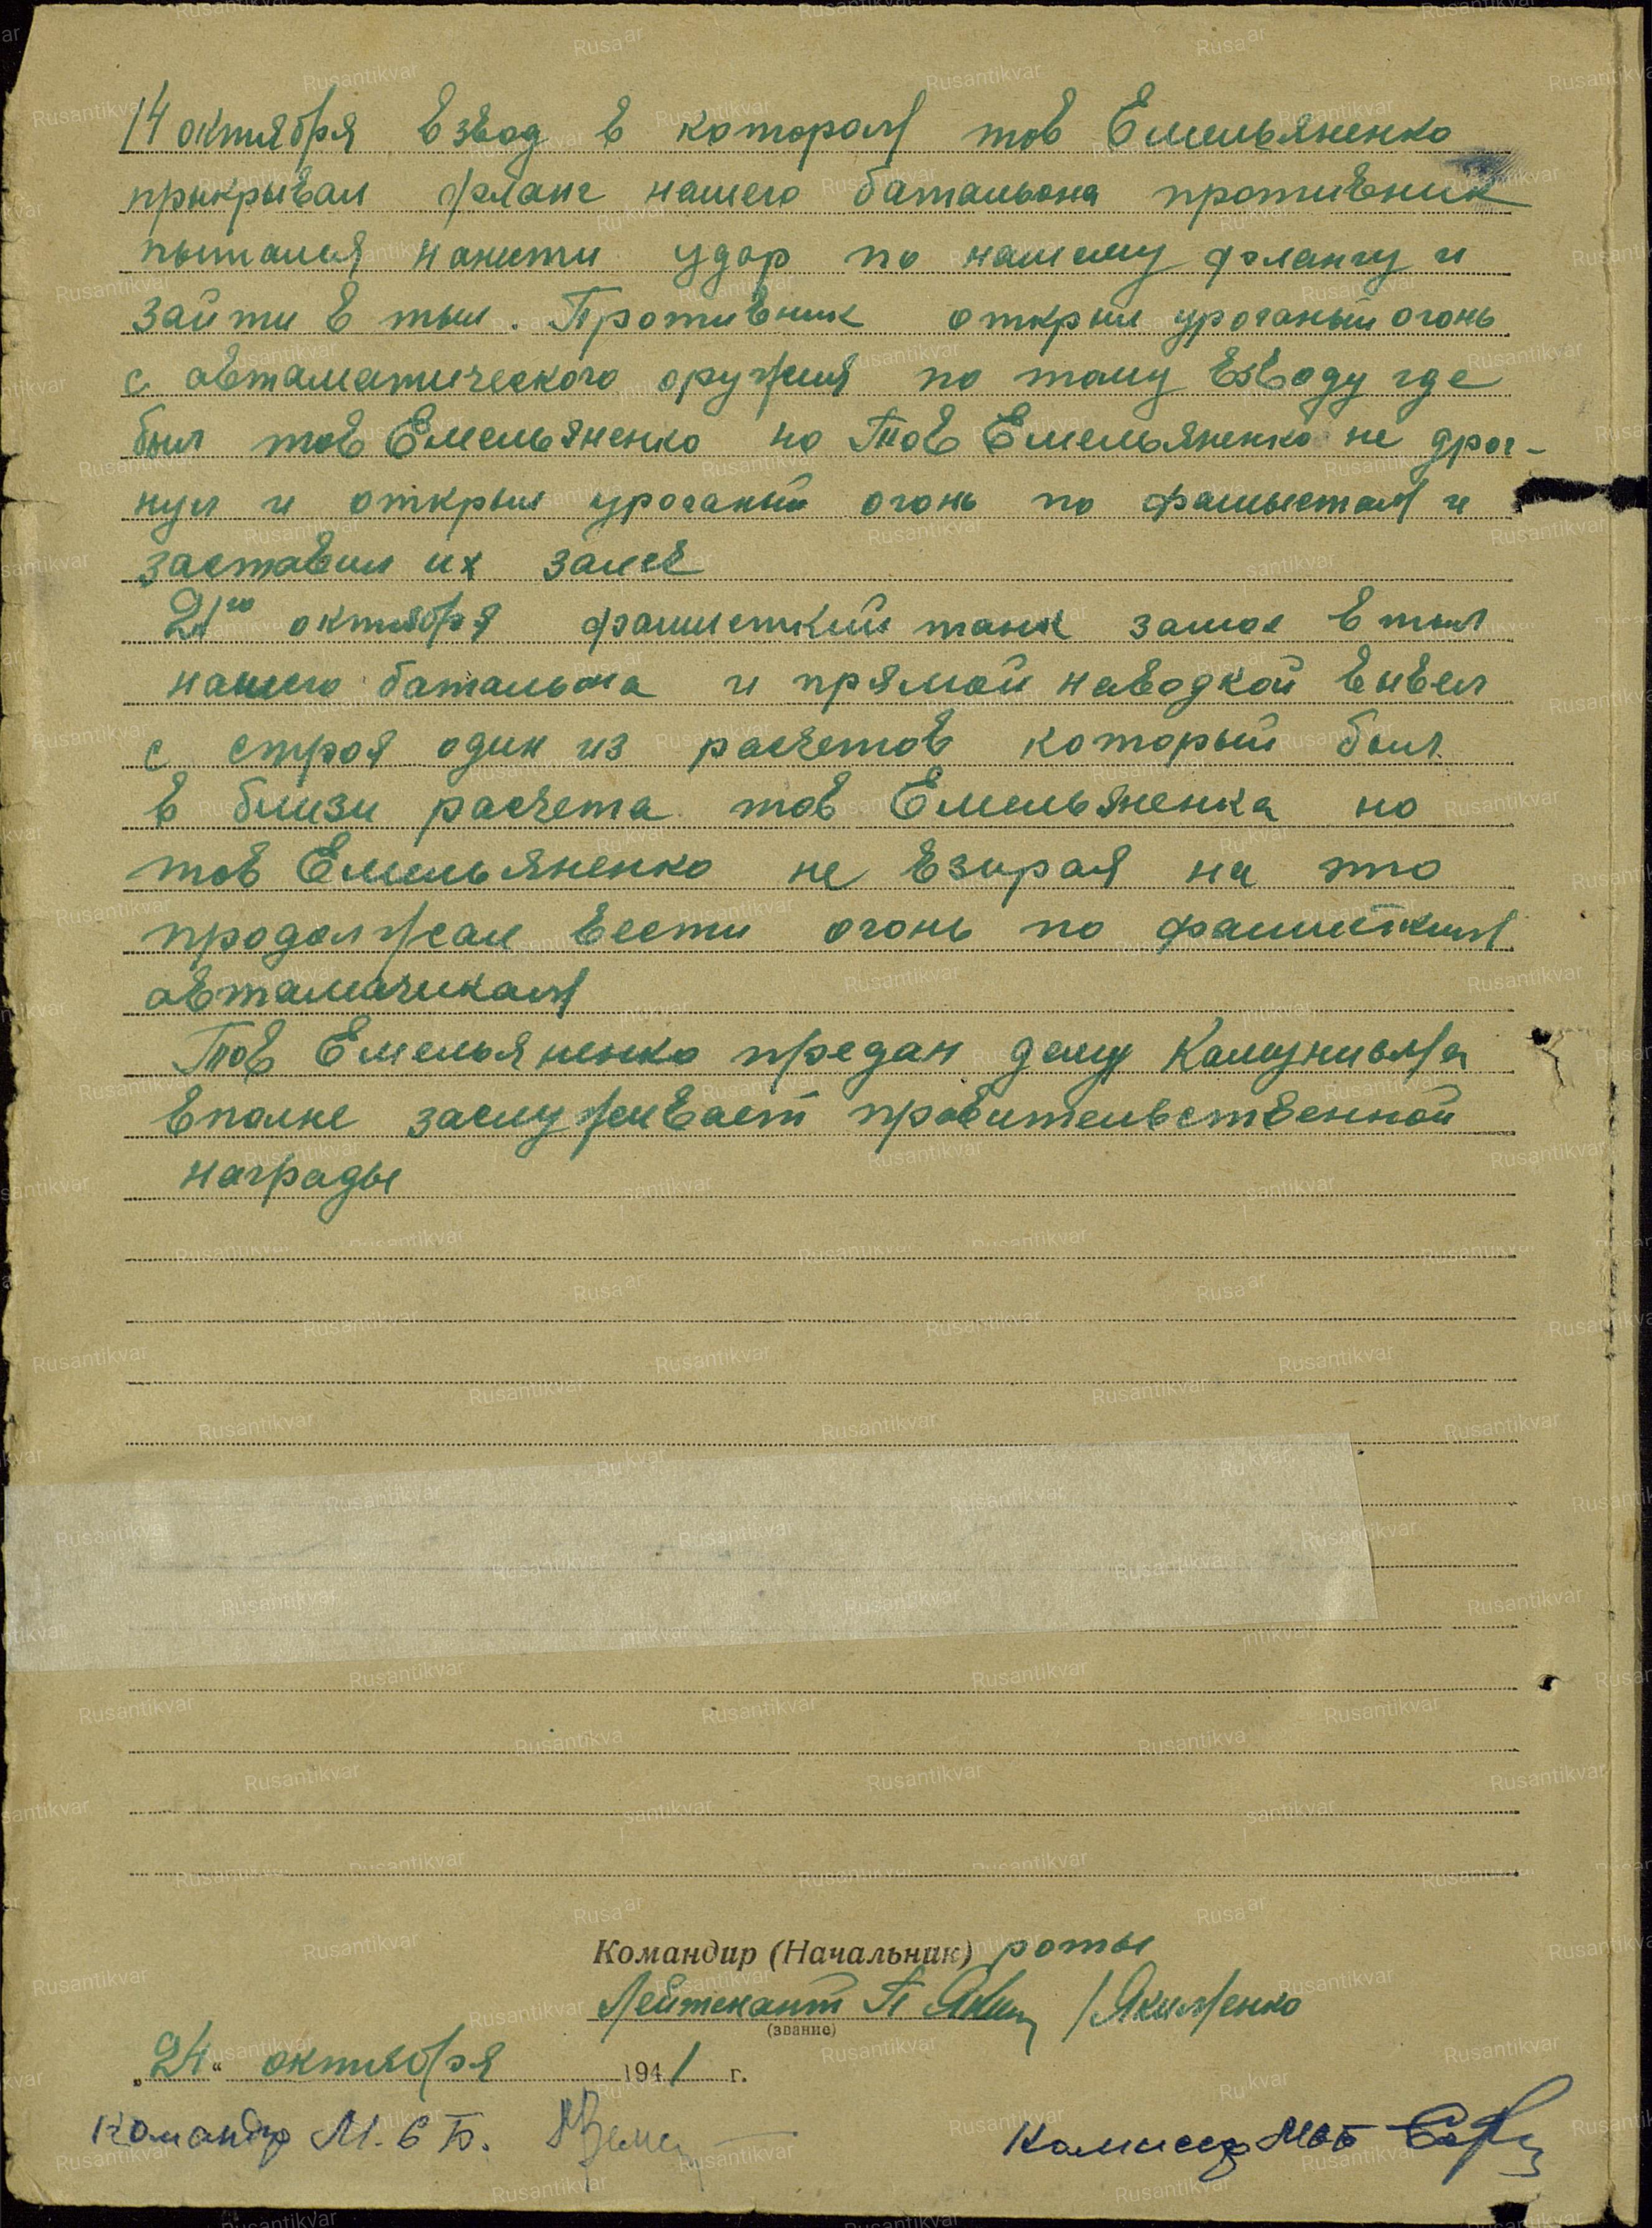 14 октября взвод в котором тов Емельяненко
прикрывал фланг нашего батальона противник
пытался нанести удар по нашему флангу и
зайти в тыл. Противник открыл ураганый огонь
с автаматического оружия по тому взводу где
был тов Емельяненко но Тов Емельяненко не дрог-
нул и открыл ураганый огонь по фашыстам и
заставил их залеч
21го октября фашисткий танк зашол в тыл
нашего батальона и прямой наводкой вывел
с строя один из расчетов который был
в близи расчета тов Емельяненка но
тов Емельяненко не взирая на это
продолжал вести огонь по фашистким
автаматчикам
Тов Емельяненко предан делу Комунизма
вполне заслуживает правительственной
награды
Командир (Начальник) роты
Лейтенант П Яким /Якименко
(звание)
„24“ октября 1941 г.
Командир М.С.Б.
Комиссар МСБ
Rusantikvar